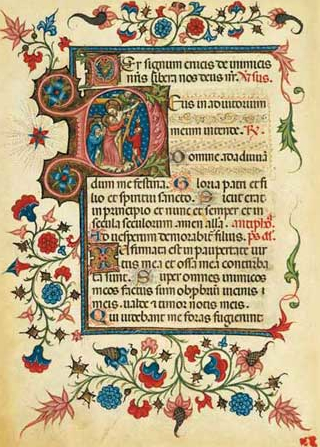 Per signum crucis de inimicis
nris libera nos deus nr. Vsus.
Deus in adiutorium
meum intende. R.
Domine ad adiuuan
dum me festina. Gloria patri et fi
lio et spiritui sancto. Sicut erat
in principio et nunc et semper et in
secula seculorum. amen. alla. antipho.
Ad uesperum demorabit fletus. ps. ds.
Infirmata est in paupertate uir
tus mea et ossa mea conturba
ta sunt. Super omnes inimicos
meos factus sum obprobrium uicinis
meis. ualde et timor notis meis.
Qui uidebant me foras fugierunt